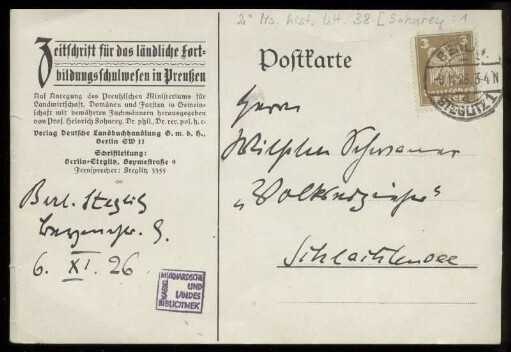 2° Ms. hist. litt. 38 [Sohnrey : 1
Zeitschrift für das ländliche Fort-
bildungsschulwesen in Preußen
Auf Anregung des Preußischen Ministeriums für
Landwirtschaft, Domänen und Forsten in Gemein-
schaft mit bewährten Fachmännern herausgegeben
von Prof. Heinrich Sohnrey, Dr. phil., Dr. rer. pol. h. c.
Verlag Deutsche Landbuchhandlung G. m. b. H.,
Berlin SW 11
Schriftleitung:
Berlin-Steglitz, Beymestraße 9
Fernsprecher: Steglitz 3355
Berl. Steglitz
Beymestr. 9.
6. XI. 26.
MURHARDSCHE
KASSEL UND
LANDES
BIBLIOTHEK
Postkarte
3
BERLIN
26 3-4 N
STEGLITZ 1
Herrn
Wilhelm Schwaner
„Volkserzieher"
Schlachtensee